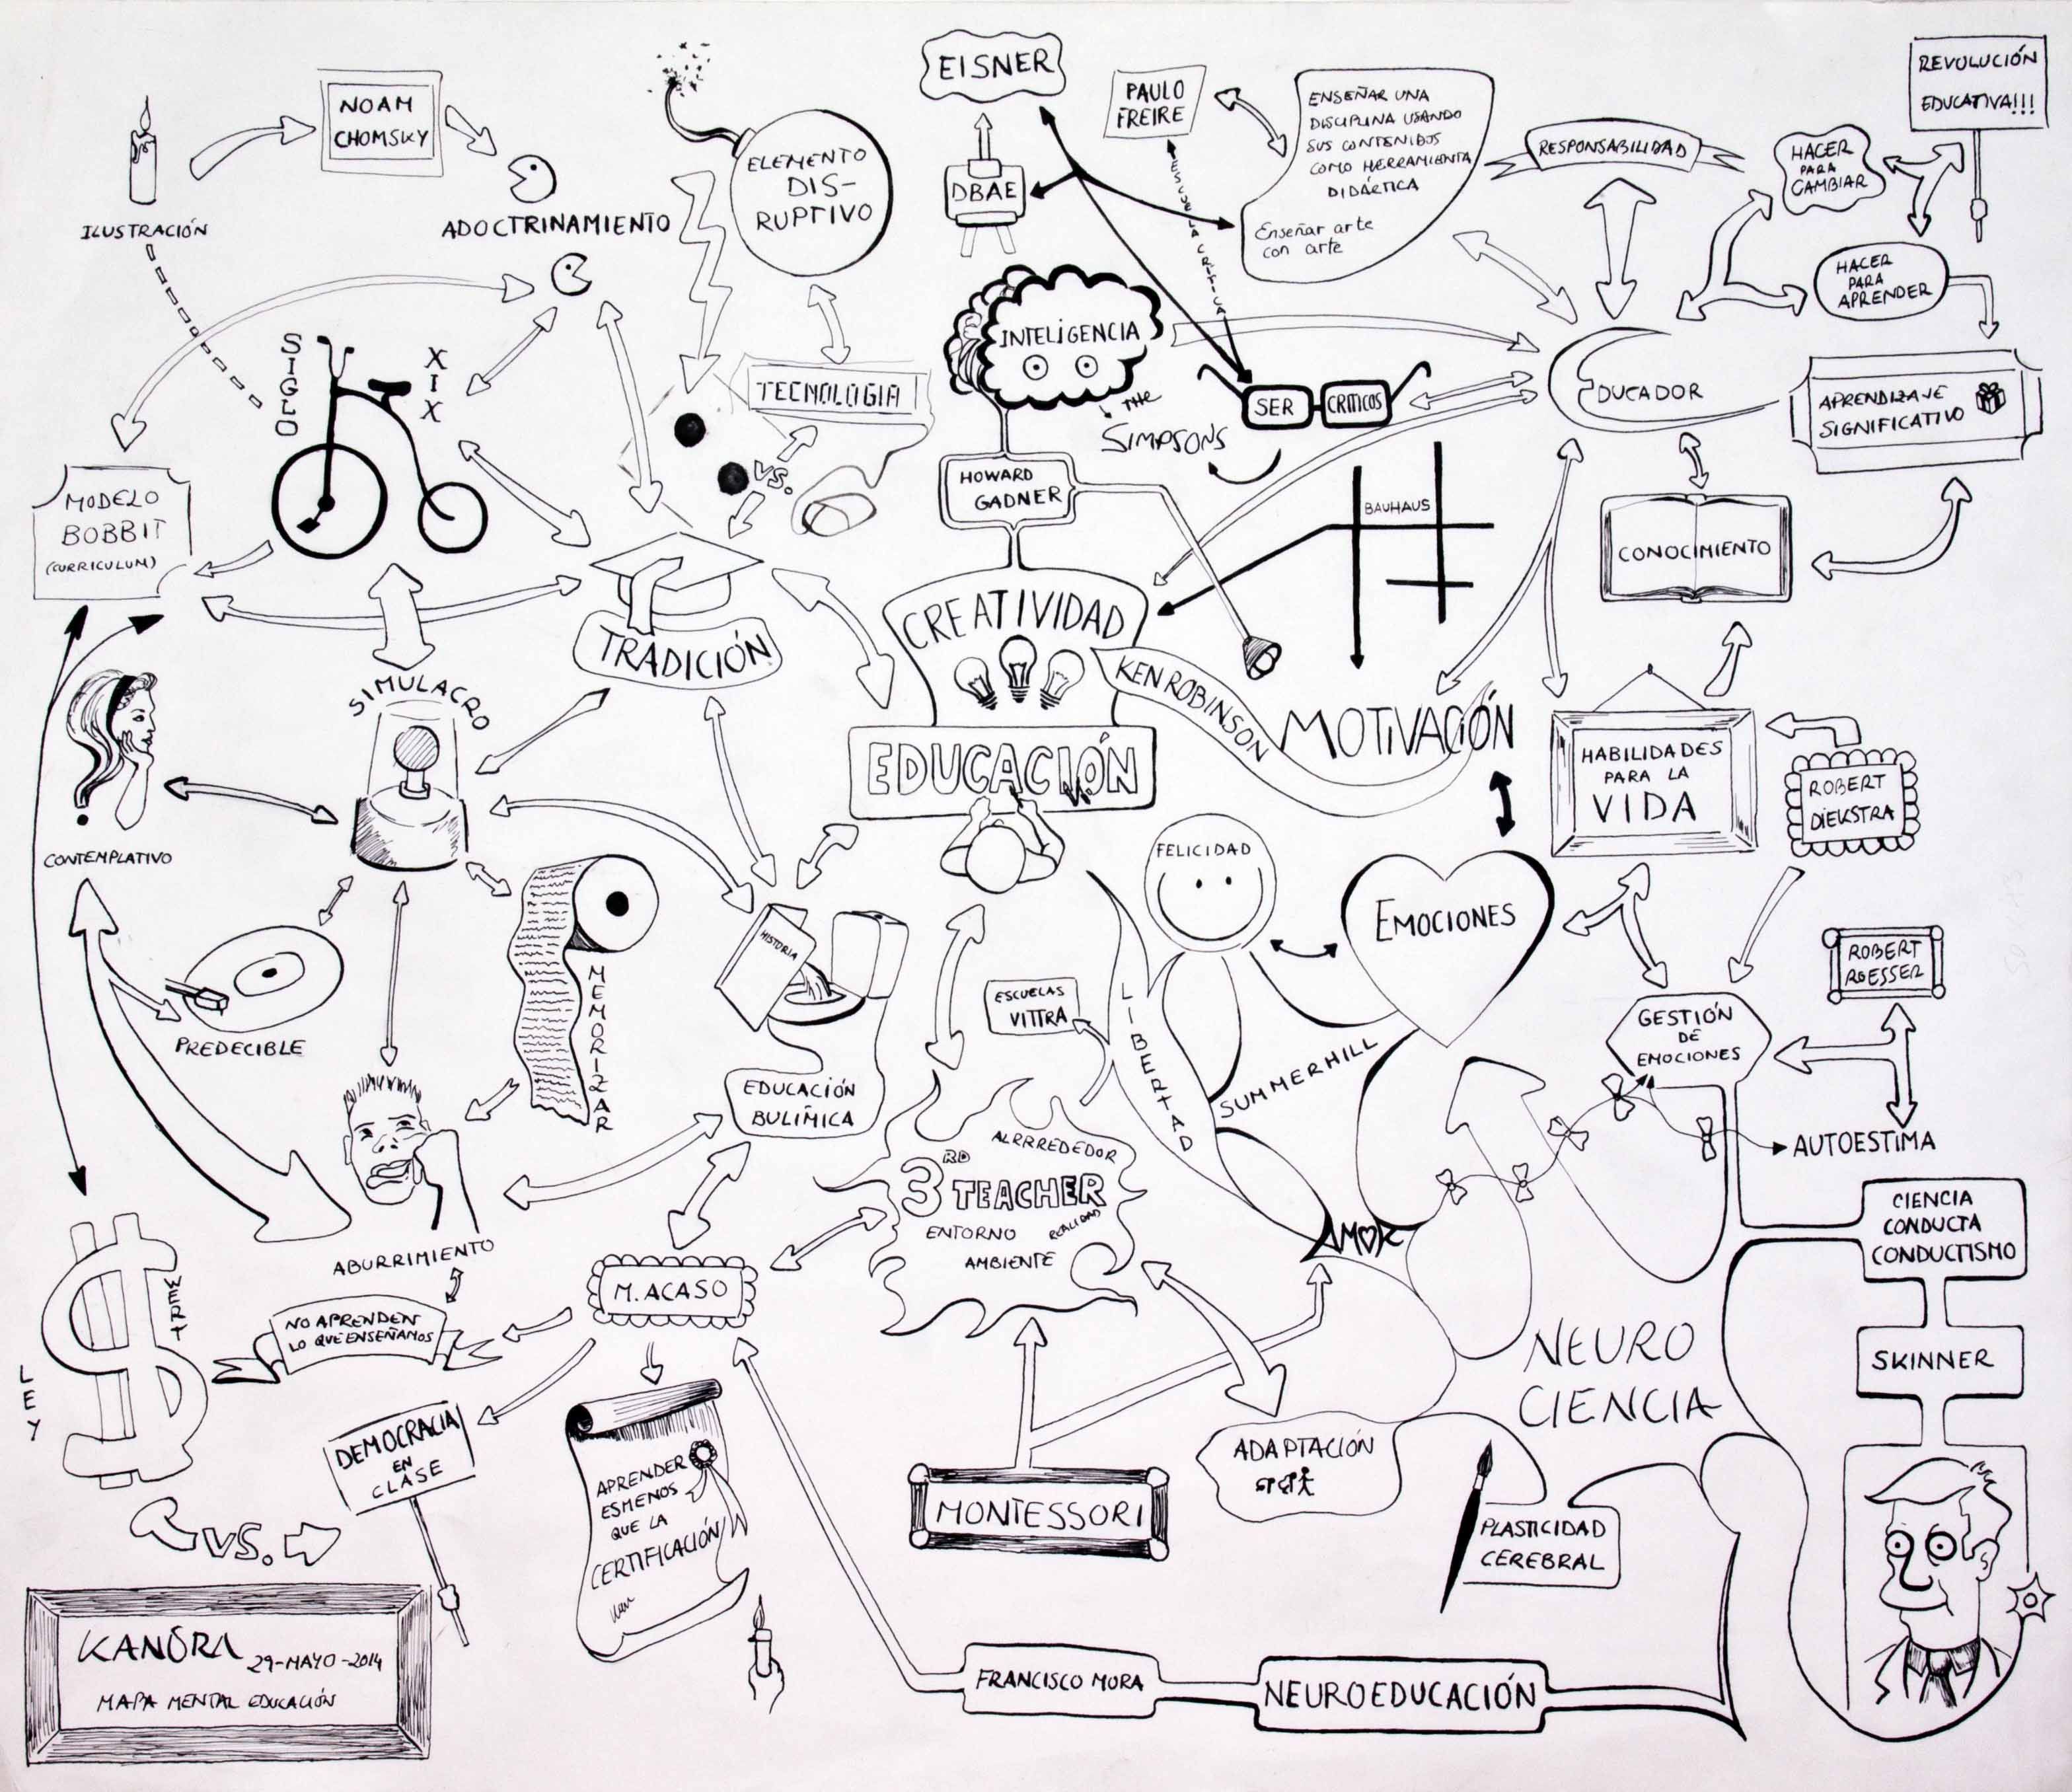 EISNER
PAULO
FREIRE
ENSEÑAR UNA
DISCIPLINA USANDO
SUS CONTENIDOS
COMO HERRAMIENTA
DIDÁCTICA
Enseñar arte
con arte
REVOLUCIÓN
EDUCATIVA!!!
NOAM
CHOMSKY
ELEMENTO
DIS-
RUPTIVO
DBAE
ESCUELA CRÍTICA
RESPONSABILIDAD
HACER
PARA
CAMBIAR
ILUSTRACIÓN
ADOCTRINAMIENTO
HACER
PARA
APRENDER
SIGLO
XIX
TECNOLOGIA
INTELIGENCIA
THE
SIMPSONS
SER
CRITICOS
EDUCADOR
APRENDIZAJE
SIGNIFICATIVO
MODELO
BOBBIT
(CURRICULUM)
VS.
HOWARD
GADNER
BAUHAUS
CONOCIMIENTO
TRADICIÓN
CREATIVIDAD
KEN ROBINSON
MOTIVACIÓN
SIMULACRO
EDUCACIÓN
HABILIDADES
PARA LA
VIDA
ROBERT
DIEKSTRA
CONTEMPLATIVO
FELICIDAD
EMOCIONES
HISTORIA
MEMORIZAR
ESCUELAS
VITTRA
LIBERTAD
SUMMERHILL
GESTIÓN
DE
EMOCIONES
ROBERT
ROESSER
PREDECIBLE
EDUCACIÓN
BULÍMICA
AUTOESTIMA
ALRRREDEDOR
3RD TEACHER
ENTORNO
REALIDAD
AMBIENTE
AMOR
CIENCIA
CONDUCTA
CONDUCTISMO
ABURRIMIENTO
M. ACASO
WERT
LEY
NO APRENDEN
LO QUE ENSEÑAMOS
NEURO
CIENCIA
SKINNER
DEMOCRACIA
EN
CLASE
ADAPTACIÓN
APRENDER
ES MENOS
QUE LA
CERTIFICACIÓN
MONTESSORI
PLASTICIDAD
CEREBRAL
VS.
KANORA 29-MAYO-2014
MAPA MENTAL EDUCACIÓN
FRANCISCO MORA
NEUROEDUCACIÓN